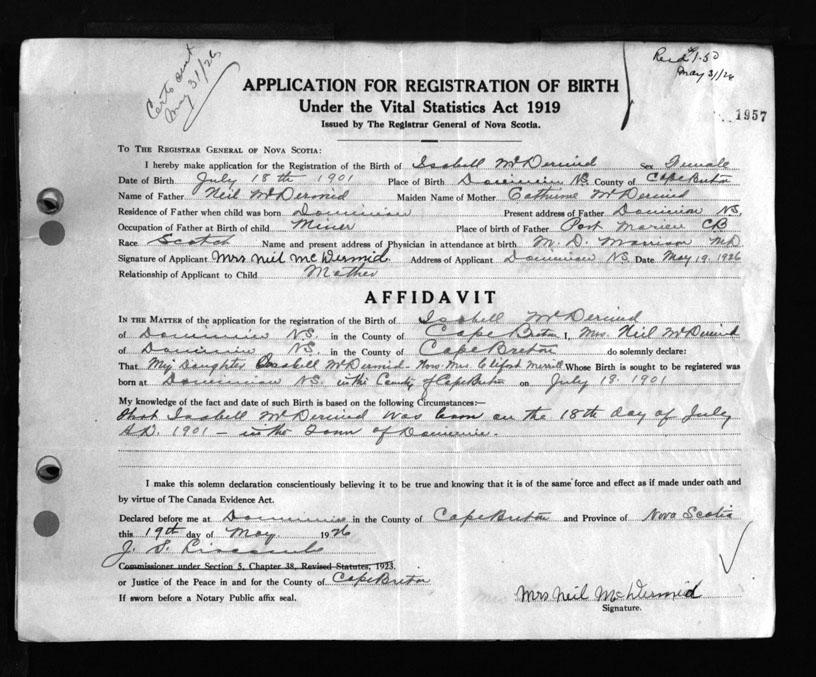 Certs out
May 31/26
Recd $1.50
May 31/26
APPLICATION FOR REGISTRATION OF BIRTH
Under the Vital Statistics Act 1919
Issued by The Registrar General of Nova Scotia.
1957
TO THE REGISTRAR GENERAL OF NOVA SCOTIA:
I hereby make application for the Registration of the Birth of Isabell McDermid Sex Female
Date of Birth July 18th 1901 Place of Birth Dominion N.S. County of Cape Breton
Name of Father Neil McDermid Maiden Name of Mother Catherine McDermid
Residence of Father when child was born Dominion Present address of Father Dominion N.S.
Occupation of Father at Birth of child Miner Place of birth of Father Port Morien CB
Race Scotch Name and present address of Physician in attendance at birth M. D. Morrison M.D.
Signature of Applicant Mrs Neil McDermid. Address of Applicant Dominion N.S. Date May 19. 1926
Relationship of Applicant to Child Mother
AFFIDAVIT
IN THE MATTER of the application for the registration of the Birth of Isabell McDermid
of Dominion N.S. in the County of Cape Breton I, Mrs. Neil McDermid
of Dominion N.S. in the County of Cape Breton do solemnly declare:
That My Daughter Isabell McDermid - Now Mrs. Cliford Merrill Whose Birth is sought to be registered was
born at Dominion N.S. in the County of Cape Breton on July 18. 1901
My knowledge of the fact and date of such Birth is based on the following Circumstances:—
That Isabell McDermid was born on the 18th day of July
A.D. 1901 — in the Town of Dominion.
I make this solemn declaration conscientiously believing it to be true and knowing that it is of the same force and effect as if made under oath and
by virtue of The Canada Evidence Act.
Declared before me at Dominion in the County of Cape Breton and Province of Nova Scotia
this 19th day of May. 1926
J. S.
Commissioner under Section 5, Chapter 38, Revised Statutes, 1923.
or Justice of the Peace in and for the County of Cape Breton
If sworn before a Notary Public affix seal.
Mrs Neil McDermid
Signature.